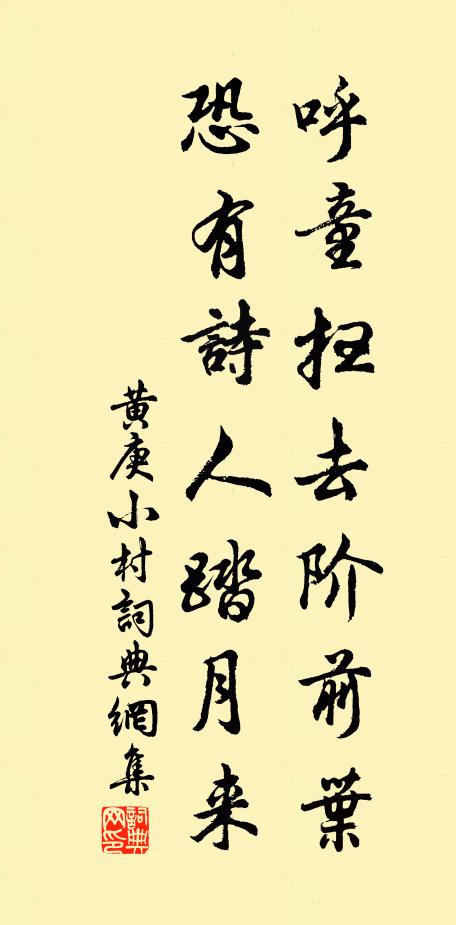 呼童扫去阶前葉
恐有詩人踏月来
黄庚小村詞典網集
詞典网印